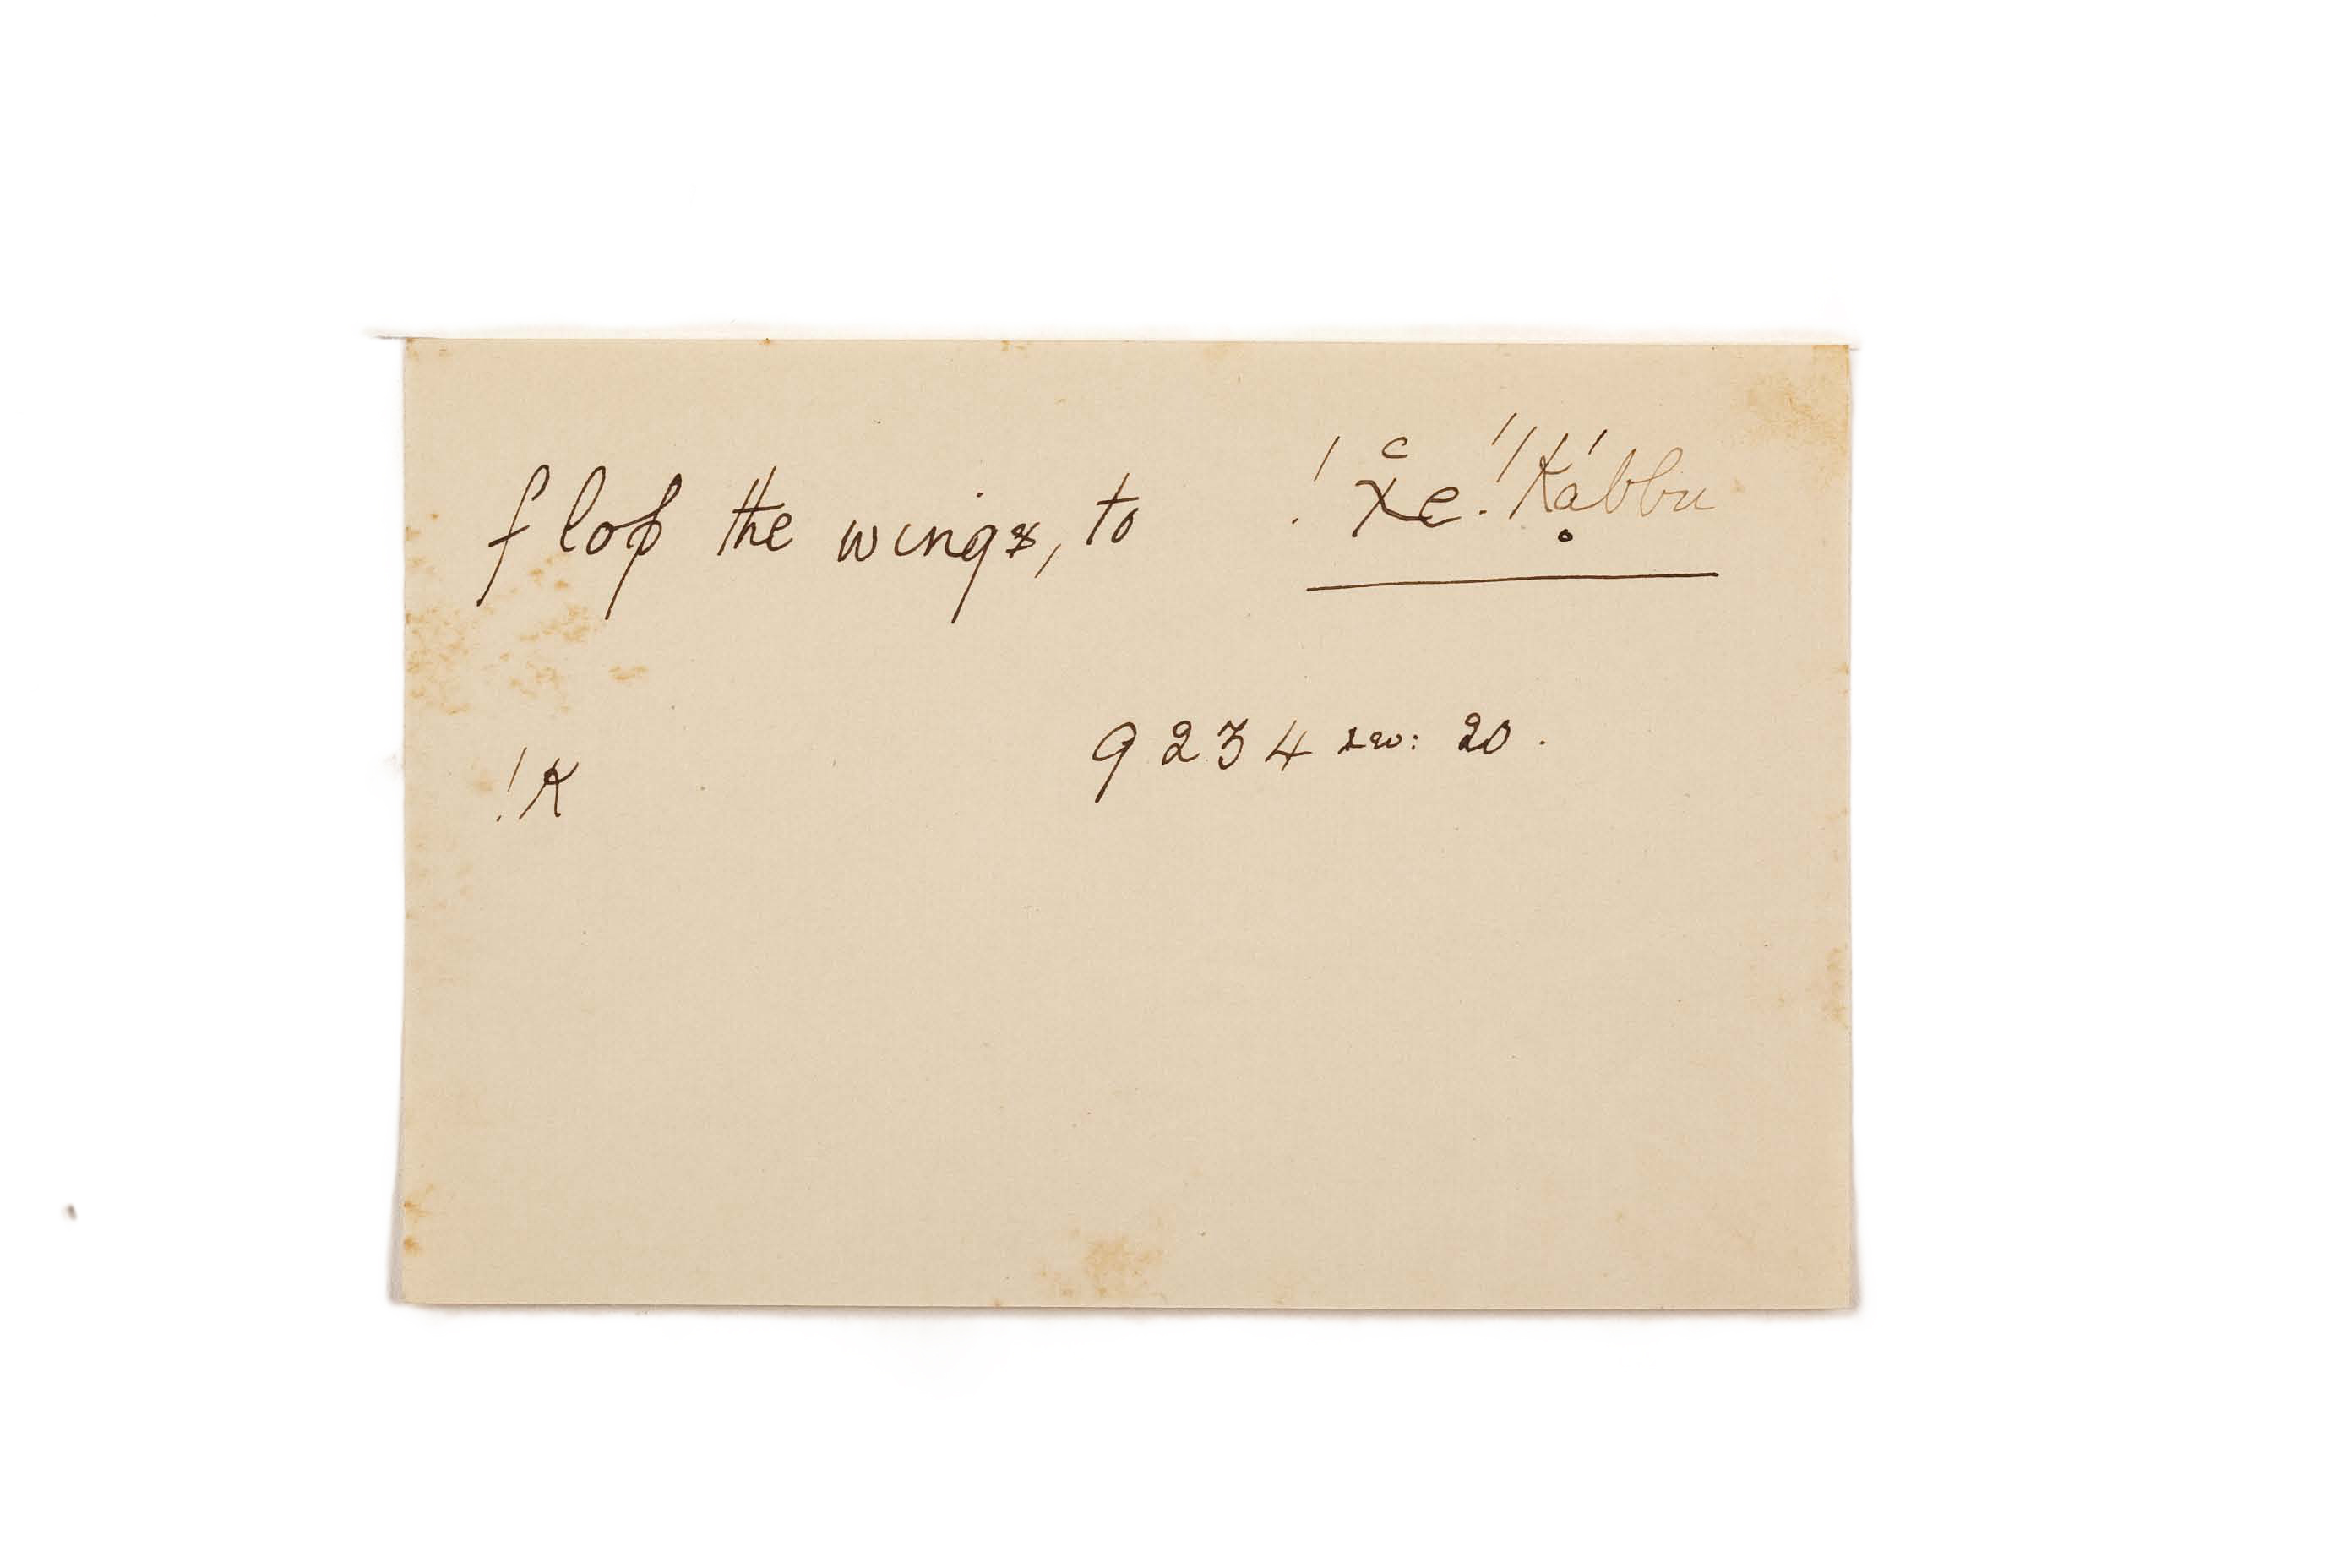 flop the wings, to !χ̆e !!k'ạbbu
!K 9234 rev: 20.